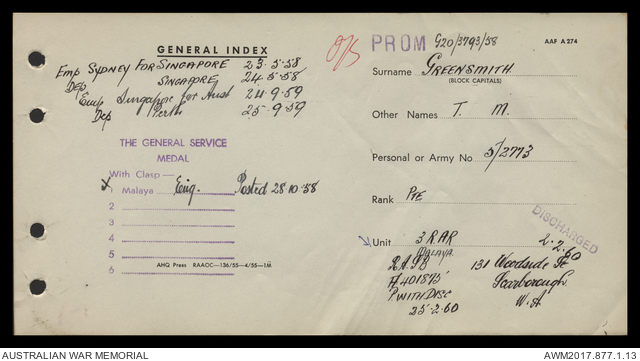 GENERAL INDEX
Emp SYDNEY FOR SINGAPORE 23-5-58
DEP SINGAPORE 24-5-58
Emp Singapore for Aust 24-9-59
Dep Perth 25-9-59
THE GENERAL SERVICE
MEDAL
With Clasp—
1 Malaya Eng. Posted 28-10-58
2
3
4
5
6
AHQ Press RAAOC—136/55—4/55—1M
O/S
PROM G20/3793/58
AAF A 274
Surname GREENSMITH
(BLOCK CAPITALS)
Other Names T. M.
Personal or Army No 5/2773
Rank Pte
DISCHARGED
2-2-60
Unit 3 RAR
MALAYA
R.A.P.B
A401875
P. WITH DISC
25-2-60
131 Woodside St
Scarborough
W.A
AUSTRALIAN WAR MEMORIAL
AWM2017.877.1.13